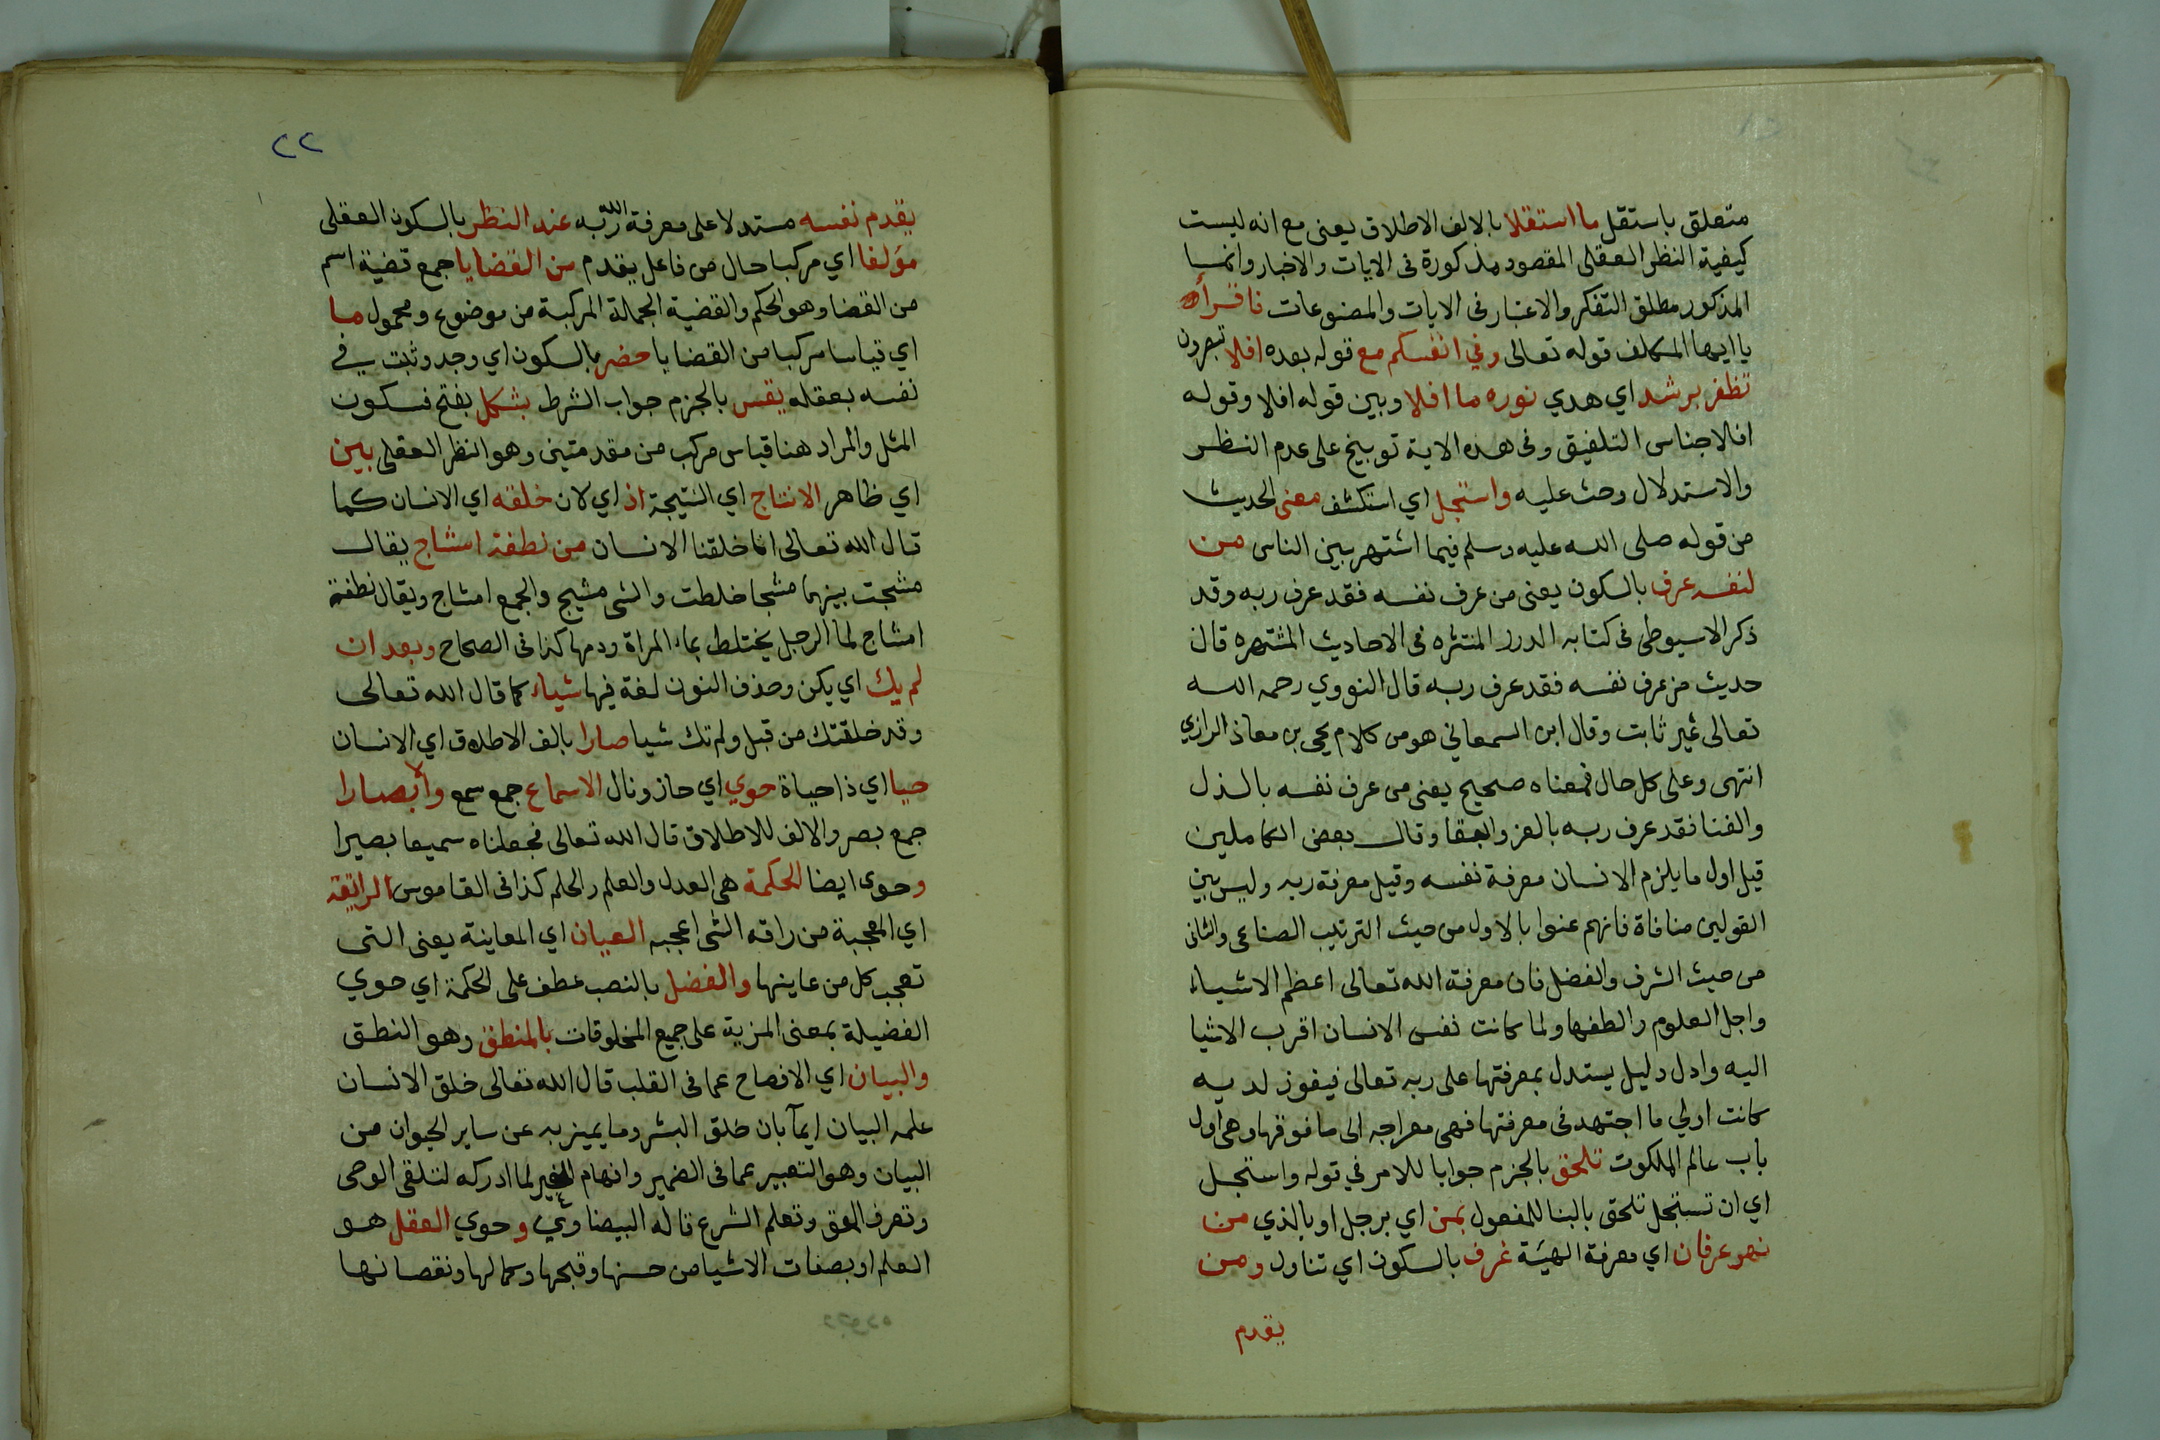 متعلق باستقل ما استقلا بالالف الاطلاق يعنى مع انه ليست
كيفية النظر العقلى المقصود مذكورة فى الايات والاخبار وانما
المذكور مطلق التفكر والاعتبار فى الايات والمصنوعات فاقرأن
يا ايها المكلف قوله تعالى وفي انفسكم مع قوله بعده افلا تبصرون
تظفر برشد اي هدي نوره ما افلا وبين قوله افلا وقوله
افلا جناس التلفيق وفى هده الاية توبيخ على عدم النظر
والاستدلال وحث عليه واستجل اي استكشف معنى الحديث
من قوله صلى الله عليه وسلم فيما اشتهر بين الناس من
لنفسه عرف بالسكون يعنى من عرف نفسه فقد عرف ربه وقد
ذكر الاسيوطى فى كتابه الدرر المنتثره فى الاحاديث المشتهره قال
حديث من عرف نفسه فقد عرف ربه قال النووي رحمه الله
تعالى غير ثابت وقال ابن السمعاني هو من كلام يحيى بن معاذ الرازي
انتهى وعلى كل حال فمعناه صحيح يعنى من عرف نفسه بالذل
والفنا فقد عرف ربه بالعز والبقا وقال بعض الكاملين
قيل اول ما يلزم الانسان معرفة نفسه وقيل معرفة ربه وليس بين
القولين منافاة فانهم عنوا بالاول من حيث الترتيب الصناعى والثانى
من حيث الشرف والفضل فان معرفة الله تعالى اعظم الاشياء
واجل العلوم والطفها ولما كانت نفس الانسان اقرب الاشيا
اليه وادل دليل يستدل بمعرفتها على ربه تعالى فيفوز لديه
كانت اولي ما اجتهد فى معرفتها فهى معراجه الى ما فوقها وهى اول
باب عالم الملكوت تلحق بالجزم جوابا للامر في قوله واستجل
اي ان تستجل تلحق بالبنا للمفعول بمن اي برجل او بالذي من
نهر عرفان اي معرفة الهية غرف بالسكون اي تناول ومن
يقدم
٢٢
يقدم نفسه مستدلا على معرفة الله ربه عند النظر بالسكون العقلى
مؤلفا اي مركبا حال من فاعل يقدم من القضايا جمع قضية اسم
من القضا وهو الحكم والقضية الجملة المركبة من موضوع ومحمول ما
اي قياسا مركبا من القضايا حضر بالسكون اي وجد وثبت في
نفسه بعقله يقس بالجزم جواب الشرط بشكل بفتح فسكون
المثل والمراد هنا قياس مركب من مقدمتين وهو النظر العقلى بين
اي ظاهر الانتاج اي النتيجة اذ اي لان خلقه اي الانسان كما
قال الله تعالى انا خلقنا الانسان من نطفة امشاج يقال
مشجت بينهما مشجا خلطت والشى مشيج والجمع امشاج ويقال نطفة
امشاج لما الرجل يختلط بماء المراة ودمها كذا فى الصحاح وبعد ان
لم يك اي يكن وحذف النون لغة فيها شياء كما قال الله تعالى
وقد خلقتك من قبل ولم تك شيا صارا بالف الاطلاق اي الانسان
حيا اي ذا حياة حوي اي حاز ونال الاسماع جمع سمع والأبصارا
جمع بصر والالف للاطلاق قال الله تعالى فجعلناه سميعا بصيرا
وحوى ايضا الحكمة هى العدل والعلم والحلم كذا فى القاموس الرائقة
اي المعجبة من راقه الشى اعجبه العيان اي المعاينة يعنى التى
تعجب كل من عاينها والفضل بالنصب عطف على الحكمة اي حوي
الفضيلة بمعنى المزية على جميع المخلوقات بالمنطق وهو النطق
والبيان اي الافصاح عما فى القلب قال الله تعالى خلق الانسان
علمه البيان ايمآ بان خلق البشر وما يميز به عن ساير الحيوان من
البيان وهو التعبير عما فى الضمير وافهام الغير لما ادركه لتلقى الوحى
وتعرف الحق وتعلم الشرع قاله البيضاوي وحوي العقل هو
العلم او بصفات الاشيا من حسنها وقبحها وكمالها ونقصانها